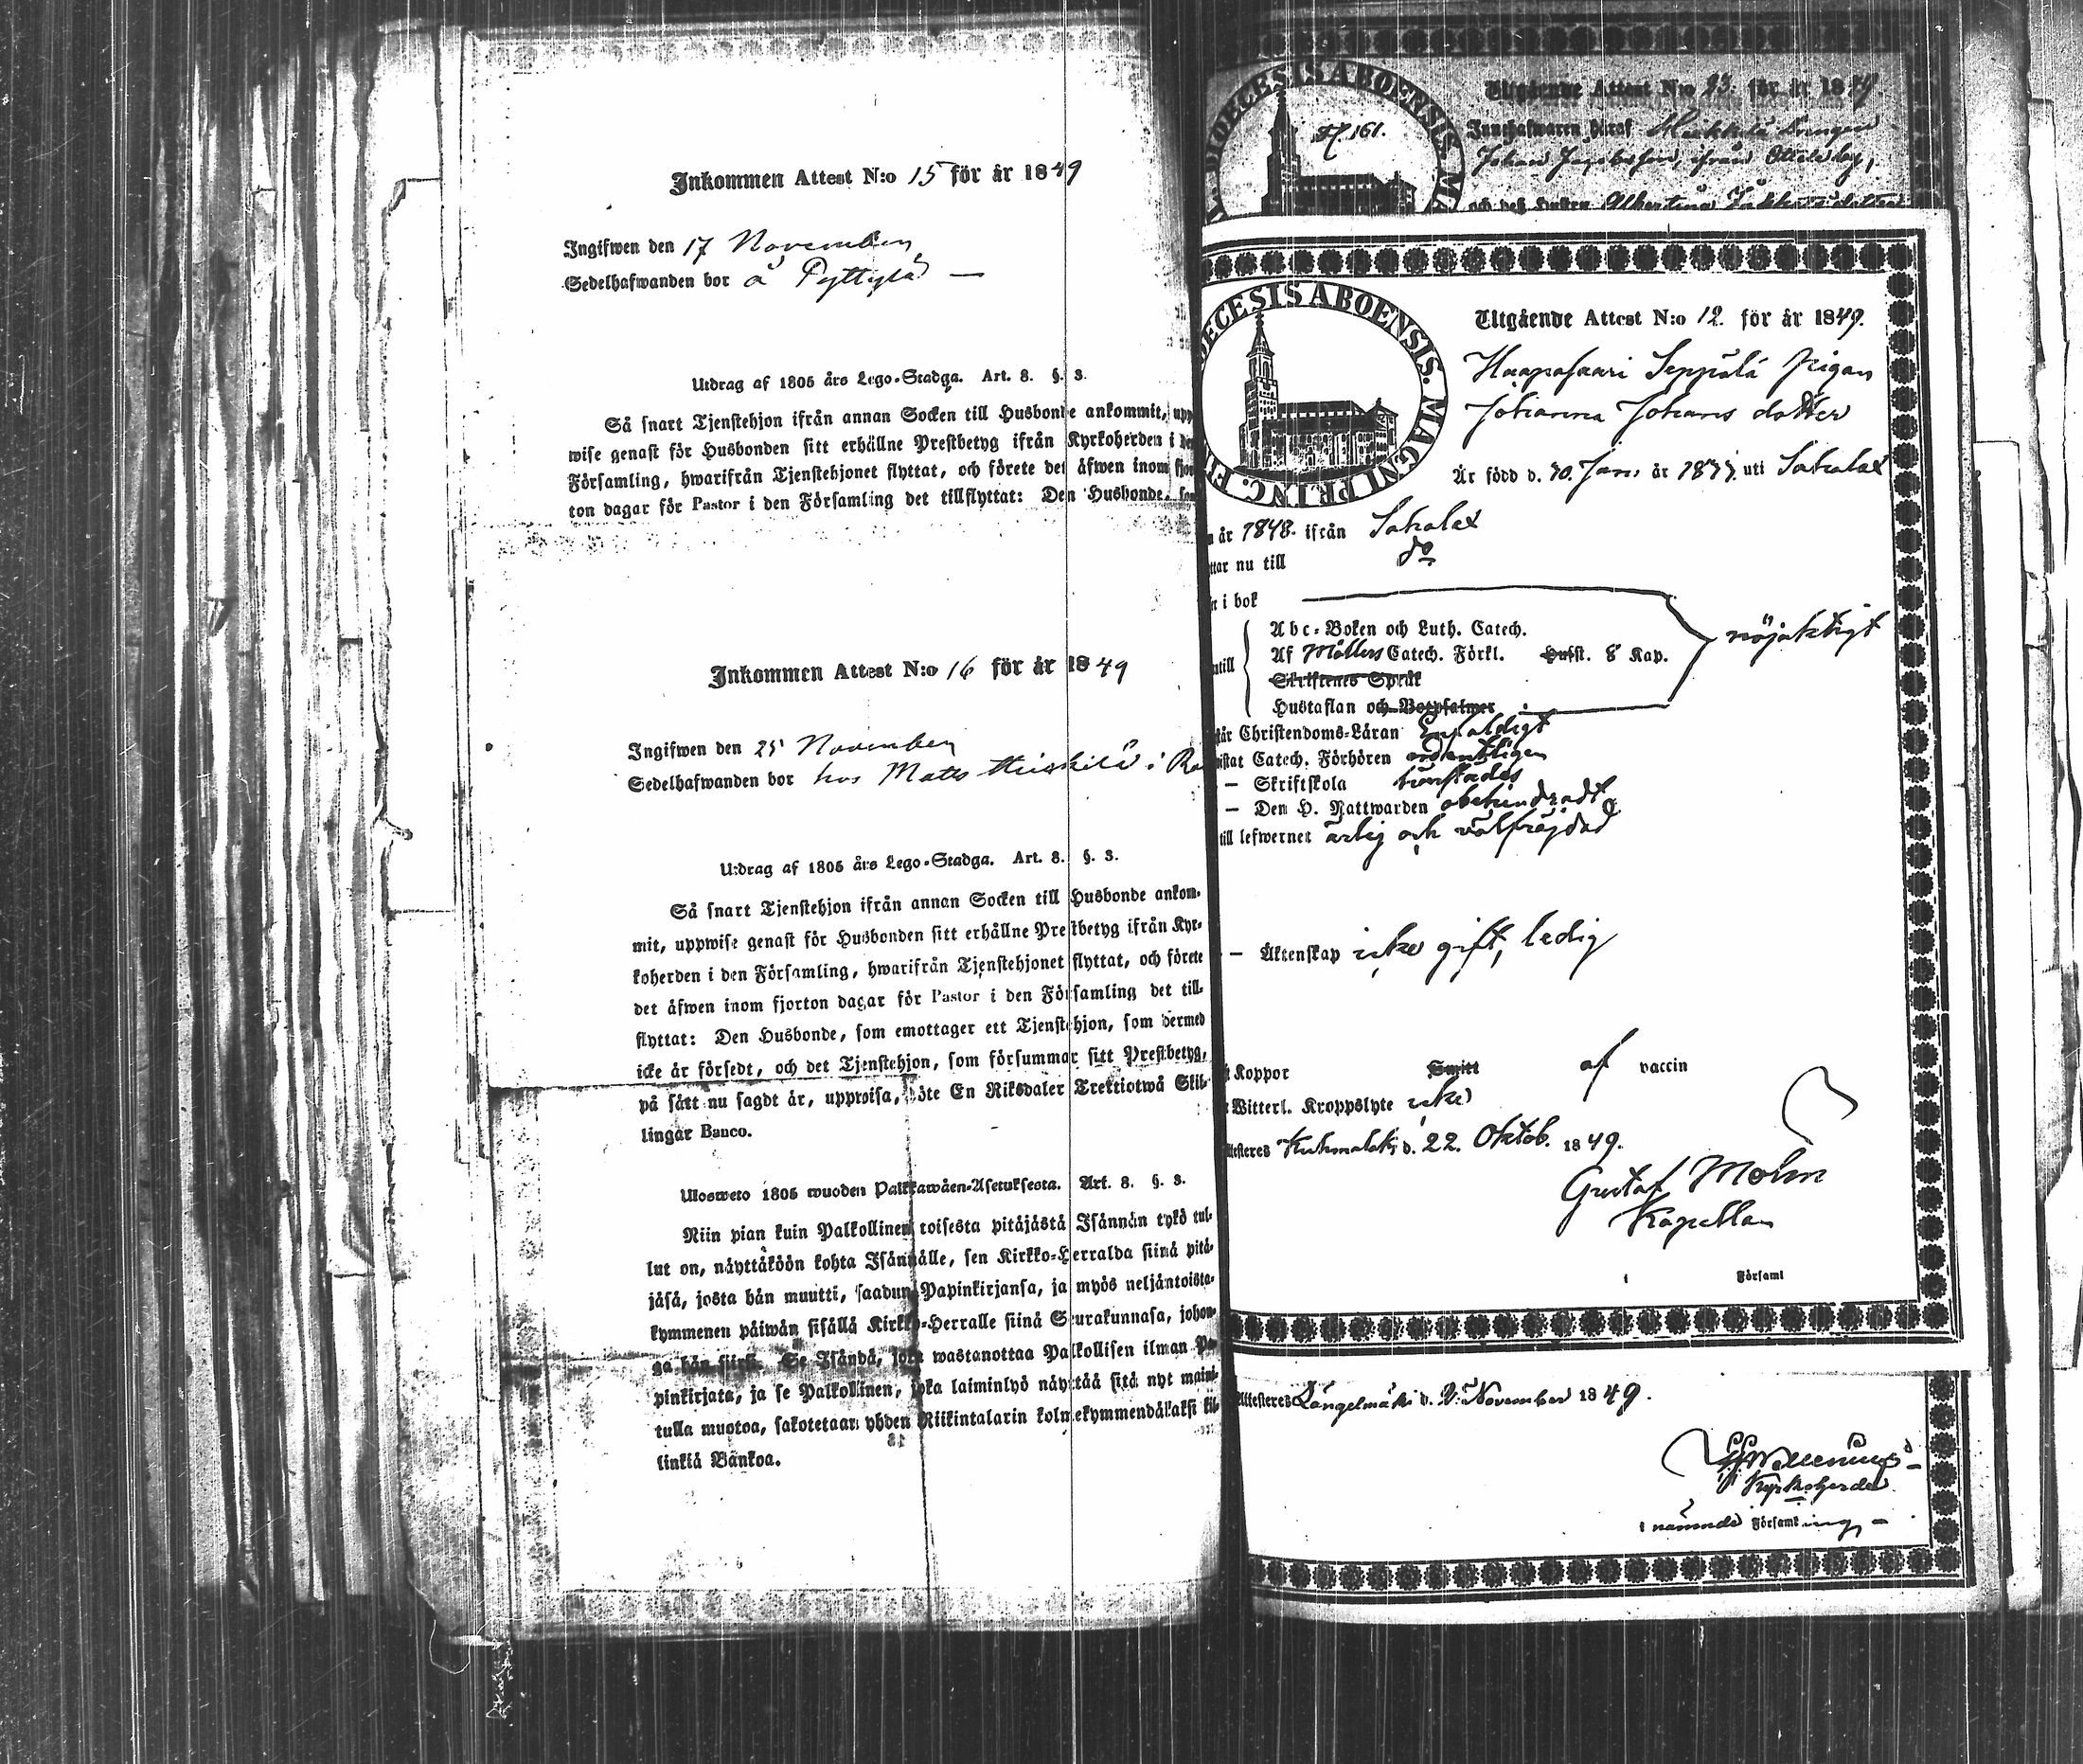 Inkommen Attest N:o 15 för år 1849
Ingifwen den 17 November
Sedelhafwanden bor å Pyttylä —
Utdrag af 1805 års Lego-Stadga. Art. 8. §. 3.
Så snart Tjenstehjon ifrån annan Socken till Husbonde ankommit, upp
wise genast för Husbonden sitt erhållne Prestbetyg ifrån Kyrkoherden i den
Församling, hwarifrån Tjenstehjonet flyttat, och förete det äfwen inom fjor
ton dagar för Pastor i den Församling det tillflyttat: Den Husbonde, som
Inkommen Attest N:o 16 för år 1849
Ingifwen den 25 November
Sedelhafwanden bor hos Matts i
Utdrag af 1805 års Lego-Stadga. Art. 8. §. 3.
Så snart Tjenstehjon ifrån annan Socken till Husbonde ankom-
mit, uppwise genast för Husbonden sitt erhållne Prestbetyg ifrån Kyr-
koherden i den Församling, hwarifrån Tjenstehjonet flyttat, och förete
det äfwen inom fjorton dagar för Pastor i den Församling det till-
flyttat: Den Husbonde, som emottager ett Tjenstehjon, som dermed
icke är försedt, och det Tjenstehjon, som försummar sitt Prestbetyg,
på sätt nu sagdt är, uppwisa, böte En Riksdaler Trettiotwå Skil-
lingar Banco.
Ulosweto 1805 wuoden Palkkawäen-Asetuksesta. Art. 8. §. 3.
Niin pian kuin Palkollinen toisesta pitäjästä Isännän tykö tul-
lut on, näyttäköön kohta Isännälle, sen Kirkko-Herralda siinä pitä-
jäsä, josta hän muutti, saadun Papinkirjansa, ja myös neljäntoista-
kymmenen päiwän sisällä Kirkko-Herralle siinä Seurakunnasa, johon-
ga hän siirsi. Se Isändä, joka wastanottaa Palkollisen ilman Pa-
pinkirjata, ja se Palkollinen, joka laiminlyö näyttää sitä nyt maini-
tulla muotoa, sakotetaan yhden Riikintalarin kolmekymmendäkaksi kil-
linkiä Bankoa.
DIOECESIS ABOENSIS. MA
Utgående Attest N:o 23. för år 1849.
Innehafwaren deraf
Johan ifrån
och deß Hustru Albertina
DIOECESIS ABOENSIS. MAGNI PRINC. FI
Utgående Attest N:o 12. för år 1849.
Haapasaari Seppälä Pigan
Johanna Johans dotter
Är född d. 10. Jan. år uti Sahalax
år 1848. ifrån Sahalax
ttar nu till do
i bok
Abc-Boken och Luth. Catech.
Af Möllers Catech. Förkl. Husst. 8 Kap. nöjaktigt
Skriftenes Språk
Hustaflan och Botpsalmer
står Christendoms-Läran Enfaldigt
istat Catech. Förhören ordentligen
— Skriftskola
— Den H. Nattwarden obehindradt
till lefwernet ärlig och välfräjdad
— Äktenskap icke gift, ledig
Koppor Smitt af vaccin
Witterl. Kroppslyte icke
Attesteres Kuhmalaks d. 22. Oktob. 1849.
Gustaf Molin
Kapellan
i Församl
Attesteres Längelmäki d. 2. November 1849.
Kyrkoherde
i nämnde Församling —